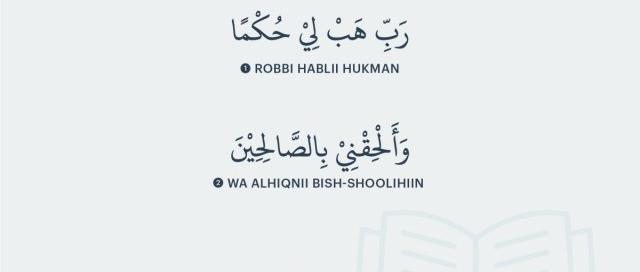 رَبِّ هَبْ لِيْ حُكْمًا
❶ ROBBI HABLII HUKMAN
وَأَلْحِقْنِيْ بِالصَّالِحِيْنَ
❷ WA ALHIQNII BISH-SHOOLIHIIN